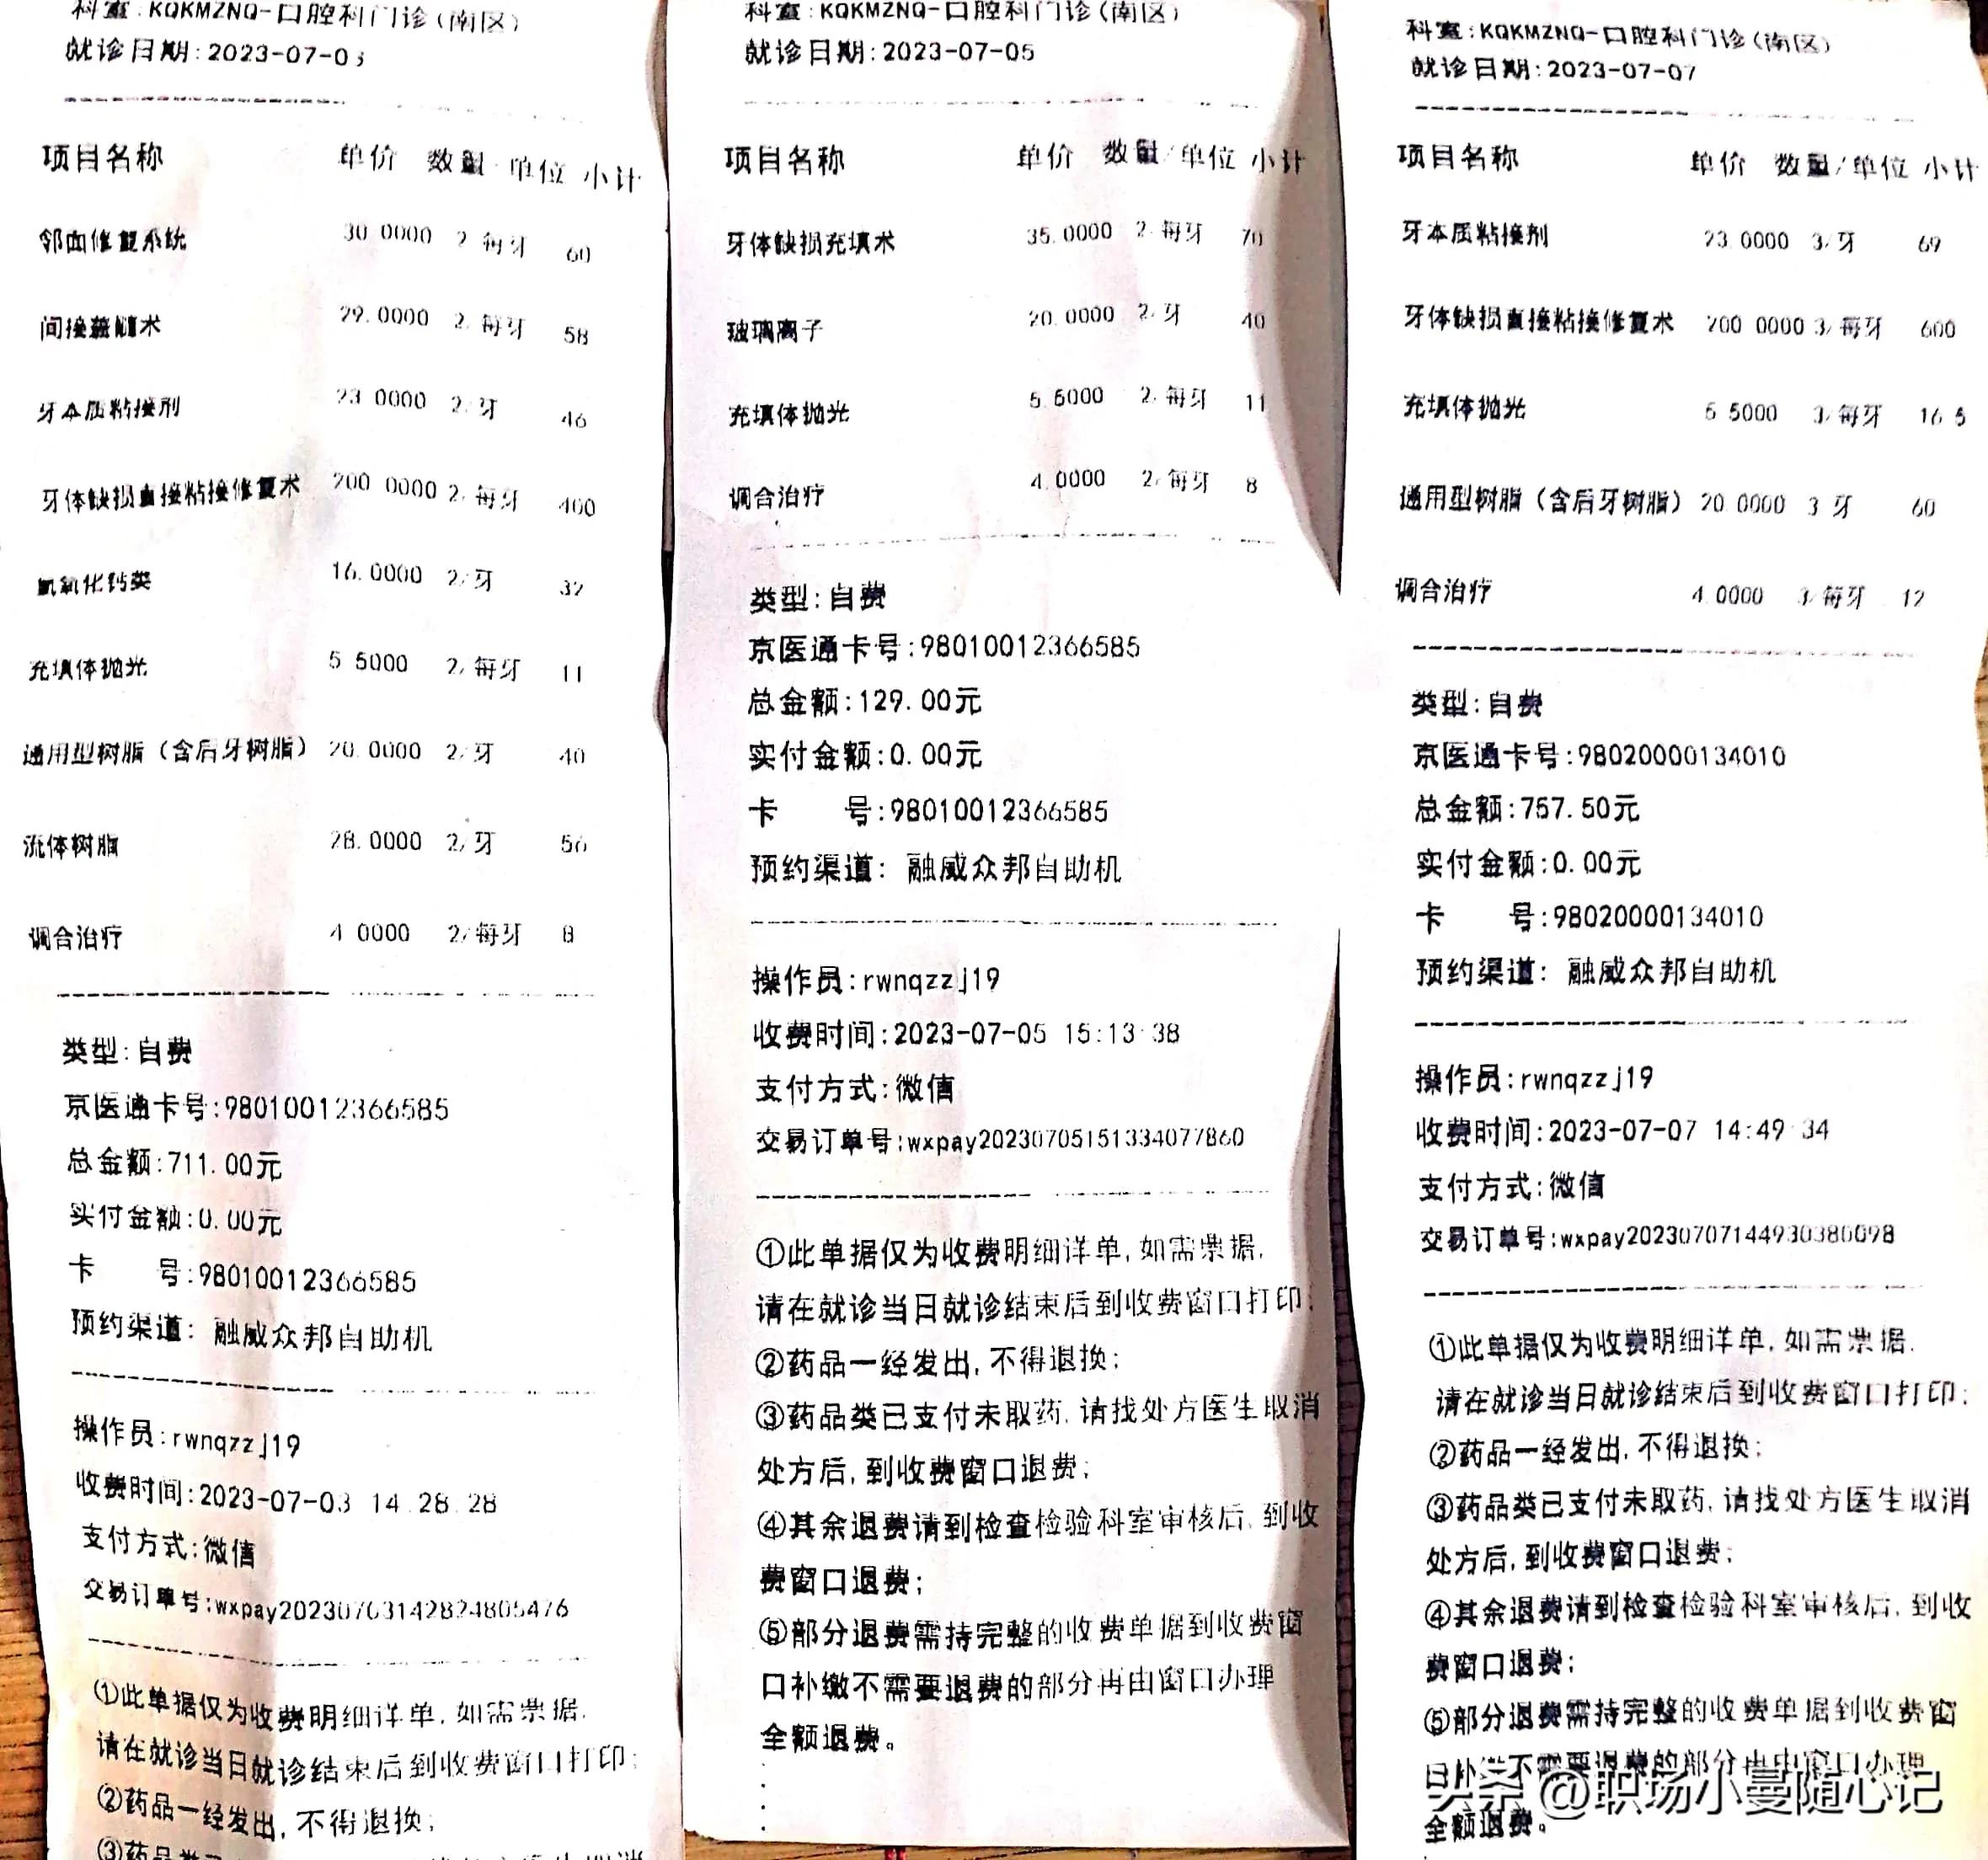 科室:KQKMZNQ-口腔科门诊(南区)
就诊日期:2023-07-03
项目名称 单价 数量/单位 小计
邻面修复系统 30.0000 2/每牙 60
间接盖髓术 29.0000 2/每牙 58
牙本质粘接剂 23.0000 2/牙 46
牙体缺损直接粘接修复术 200.0000 2/每牙 400
氢氧化钙类 16.0000 2/牙 32
充填体抛光 5.5000 2/每牙 11
通用型树脂(含后牙树脂) 20.0000 2/牙 40
流体树脂 28.0000 2/牙 56
调合治疗 4.0000 2/每牙 8
类型:自费
京医通卡号:98010012366585
总金额:711.00元
实付金额:0.00元
卡 号:98010012366585
预约渠道: 融威众邦自助机
操作员:rwnqzzj19
收费时间:2023-07-03 14:28:28
支付方式:微信
交易订单号:wxpay20230703142824805476
①此单据仅为收费明细详单,如需票据,
请在就诊当日就诊结束后到收费窗口打印;
②药品一经发出,不得退换;
科室:KQKMZNQ-口腔科门诊(南区)
就诊日期:2023-07-05
项目名称 单价 数量/单位 小计
牙体缺损充填术 35.0000 2/每牙 70
玻璃离子 20.0000 2/牙 40
充填体抛光 5.5000 2/每牙 11
调合治疗 4.0000 2/每牙 8
类型:自费
京医通卡号:98010012366585
总金额:129.00元
实付金额:0.00元
卡 号:98010012366585
预约渠道: 融威众邦自助机
操作员:rwnqzzj19
收费时间:2023-07-05 15:13:38
支付方式:微信
交易订单号:wxpay20230705151334077860
①此单据仅为收费明细详单,如需票据,
请在就诊当日就诊结束后到收费窗口打印;
②药品一经发出,不得退换;
③药品类已支付未取药,请找处方医生取消
处方后,到收费窗口退费;
④其余退费请到检查检验科室审核后,到收
费窗口退费;
⑤部分退费需持完整的收费单据到收费窗
口补缴不需要退费的部分再由窗口办理
全额退费。
科室:KQKMZNQ-口腔科门诊(南区)
就诊日期:2023-07-07
项目名称 单价 数量/单位 小计
牙本质粘接剂 23.0000 3/牙 69
牙体缺损直接粘接修复术 200.0000 3/每牙 600
充填体抛光 5.5000 3/每牙 16.5
通用型树脂(含后牙树脂) 20.0000 3/牙 60
调合治疗 4.0000 3/每牙 12
类型:自费
京医通卡号:98020000134010
总金额:757.50元
实付金额:0.00元
卡 号:98020000134010
预约渠道: 融威众邦自助机
操作员:rwnqzzj19
收费时间:2023-07-07 14:49:34
支付方式:微信
交易订单号:wxpay20230707144930380098
①此单据仅为收费明细详单,如需票据,
请在就诊当日就诊结束后到收费窗口打印;
②药品一经发出,不得退换;
③药品类已支付未取药,请找处方医生取消
处方后,到收费窗口退费;
④其余退费请到检查检验科室审核后,到收
费窗口退费;
⑤部分退费需持完整的收费单据到收费窗
口补缴不需要退费的部分再由窗口办理
全额退费。
头条 @职场小蔓随心记